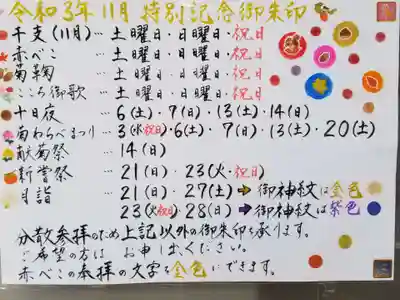 令和3年11月 特別記念御朱印
干支(11月)… 土曜日・日曜日・祝日
赤べこ … 土曜日・日曜日・祝日
菊鞠 … 土曜日・日曜日・祝日
こころ御歌 … 土曜日・日曜日・祝日
十日夜 … 6(土)・7(日)・13(土)・14(日)
わらべまつり … 3(水・祝日)・6(土)・7(日)・13(土)・20(土)
献菊祭 … 14(日)
新嘗祭 … 21(日)・23(火・祝日)
月詣 … 21(日)・27(土)➔御神紋は金色
23(火・祝日)・28(日)➔御神紋は紫色
分散参拝のため上記以外の御朱印も承ります。
ご希望の方は お申し出ください。
赤べこの奉拝の文字を金色にできます。